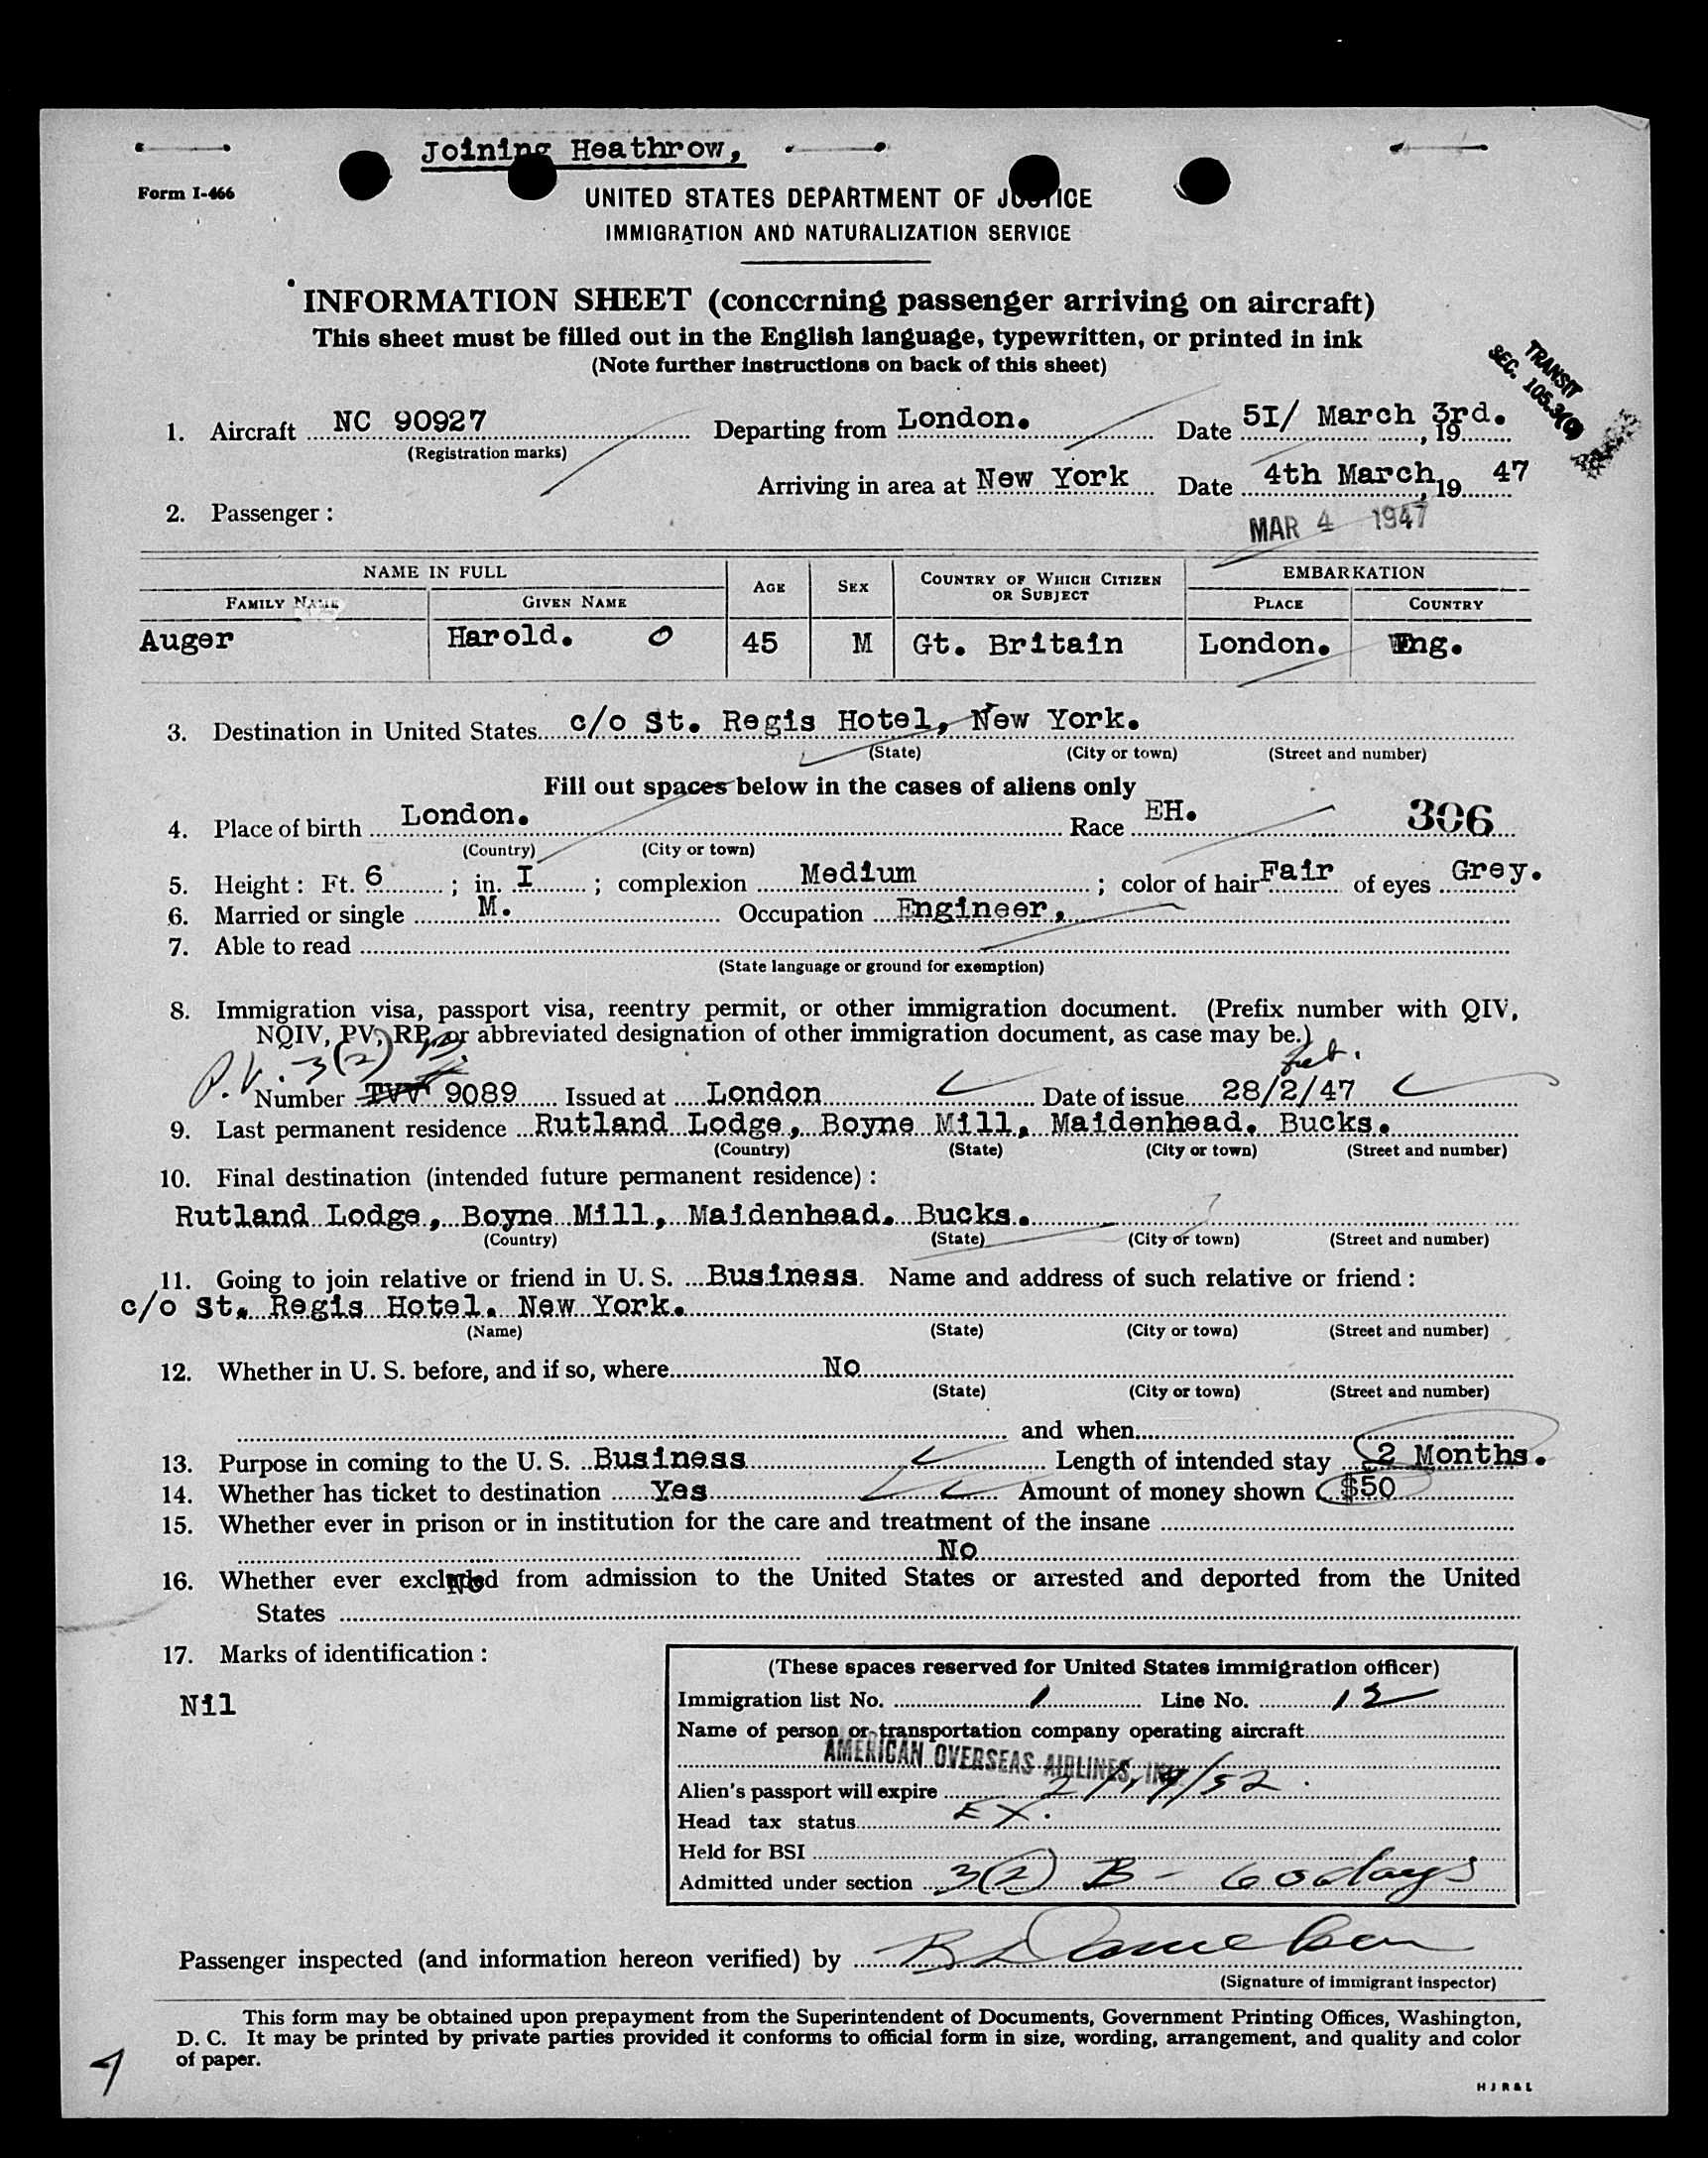 Joining Heathrow,
Form I-466
UNITED STATES DEPARTMENT OF JUSTICE
IMMIGRATION AND NATURALIZATION SERVICE
INFORMATION SHEET (concerning passenger arriving on aircraft)
This sheet must be filled out in the English language, typewritten, or printed in ink
(Note further instructions on back of this sheet)
TRANSIT
SEC. 105.3(9)
1. Aircraft NC 90927 Departing from London. Date 5I/ March 3rd. , 19
(Registration marks)
Arriving in area at New York Date 4th March, 19 47
2. Passenger :
MAR 4 1947
NAME IN FULL AGE SEX COUNTRY OF WHICH CITIZEN OR SUBJECT EMBARKATION
FAMILY NAME GIVEN NAME PLACE COUNTRY
Auger Harold. O 45 M Gt. Britain London. Eng.
3. Destination in United States c/o St. Regis Hotel, New York.
(State) (City or town) (Street and number)
Fill out spaces below in the cases of aliens only
4. Place of birth London. Race EH. 306
(Country) (City or town)
5. Height : Ft. 6 ; in. I ; complexion Medium ; color of hair Fair of eyes Grey.
6. Married or single M. Occupation Engineer,
7. Able to read
(State language or ground for exemption)
8. Immigration visa, passport visa, reentry permit, or other immigration document. (Prefix number with QIV,
NQIV, PV, RP, or abbreviated designation of other immigration document, as case may be.)
P.V. 3(2) Feb.
Number 9089 Issued at London Date of issue 28/2/47
9. Last permanent residence Rutland Lodge, Boyne Mill, Maidenhead. Bucks.
(Country) (State) (City or town) (Street and number)
10. Final destination (intended future permanent residence) :
Rutland Lodge, Boyne Mill, Maidenhead. Bucks.
(Country) (State) (City or town) (Street and number)
11. Going to join relative or friend in U. S. Business. Name and address of such relative or friend :
c/o St. Regis Hotel. New York.
(Name) (State) (City or town) (Street and number)
12. Whether in U. S. before, and if so, where No
(State) (City or town) (Street and number)
and when
13. Purpose in coming to the U. S. Business Length of intended stay 2 Months.
14. Whether has ticket to destination Yes Amount of money shown $50
15. Whether ever in prison or in institution for the care and treatment of the insane
No
16. Whether ever excluded from admission to the United States or arrested and deported from the United
No
States
17. Marks of identification :
Nil
(These spaces reserved for United States immigration officer)
Immigration list No. 1 Line No. 12
Name of person or transportation company operating aircraft
AMERICAN OVERSEAS AIRLINES, INC.
Alien's passport will expire
Head tax status EX.
Held for BSI
Admitted under section 3(2) B - 60 days
Passenger inspected (and information hereon verified) by
(Signature of immigrant inspector)
This form may be obtained upon prepayment from the Superintendent of Documents, Government Printing Offices, Washington,
D. C. It may be printed by private parties provided it conforms to official form in size, wording, arrangement, and quality and color
of paper.
H J R & L